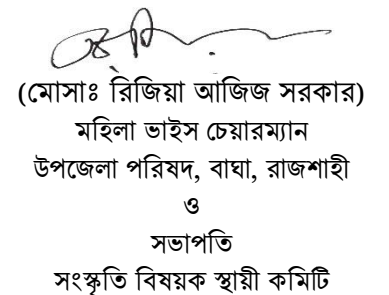 (মোসাঃ রিজিয়া আজিজ সরকার)
মহিলা ভাইস চেয়ারম্যান
উপজেলা পরিষদ, বাঘা, রাজশাহী
ও
সভাপতি
সংস্কৃতি বিষয়ক স্থায়ী কমিটি